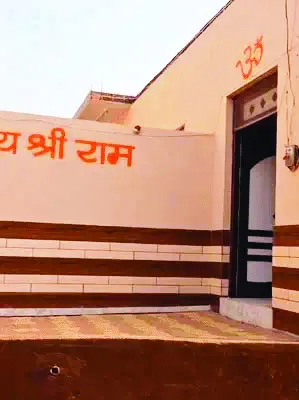 य श्री राम
ॐ